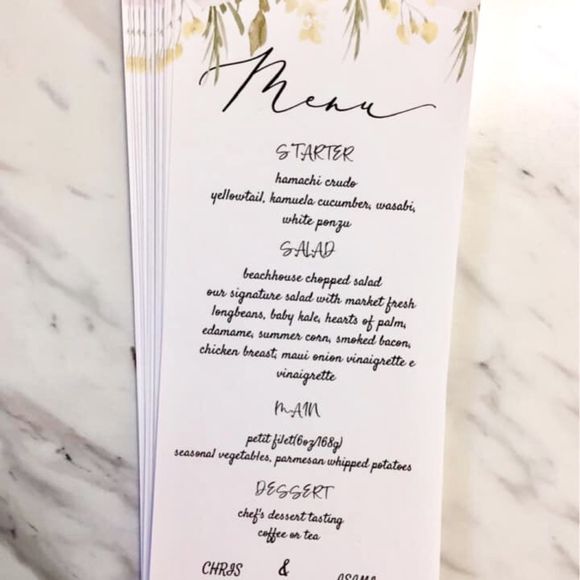 Menu
STARTER
hamachi crudo
yellowtail, kamuela cucumber, wasabi,
white ponzu
SALAD
beachhouse chopped salad
our signature salad with market fresh
longbeans, baby kale, hearts of palm,
edamame, summer corn, smoked bacon,
chicken breast, maui onion vinaigrette e
vinaigrette
MAIN
petit filet(6oz/168g)
seasonal vegetables, parmesan whipped potatoes
DESSERT
chef's dessert tasting
coffee or tea
CHRIS &